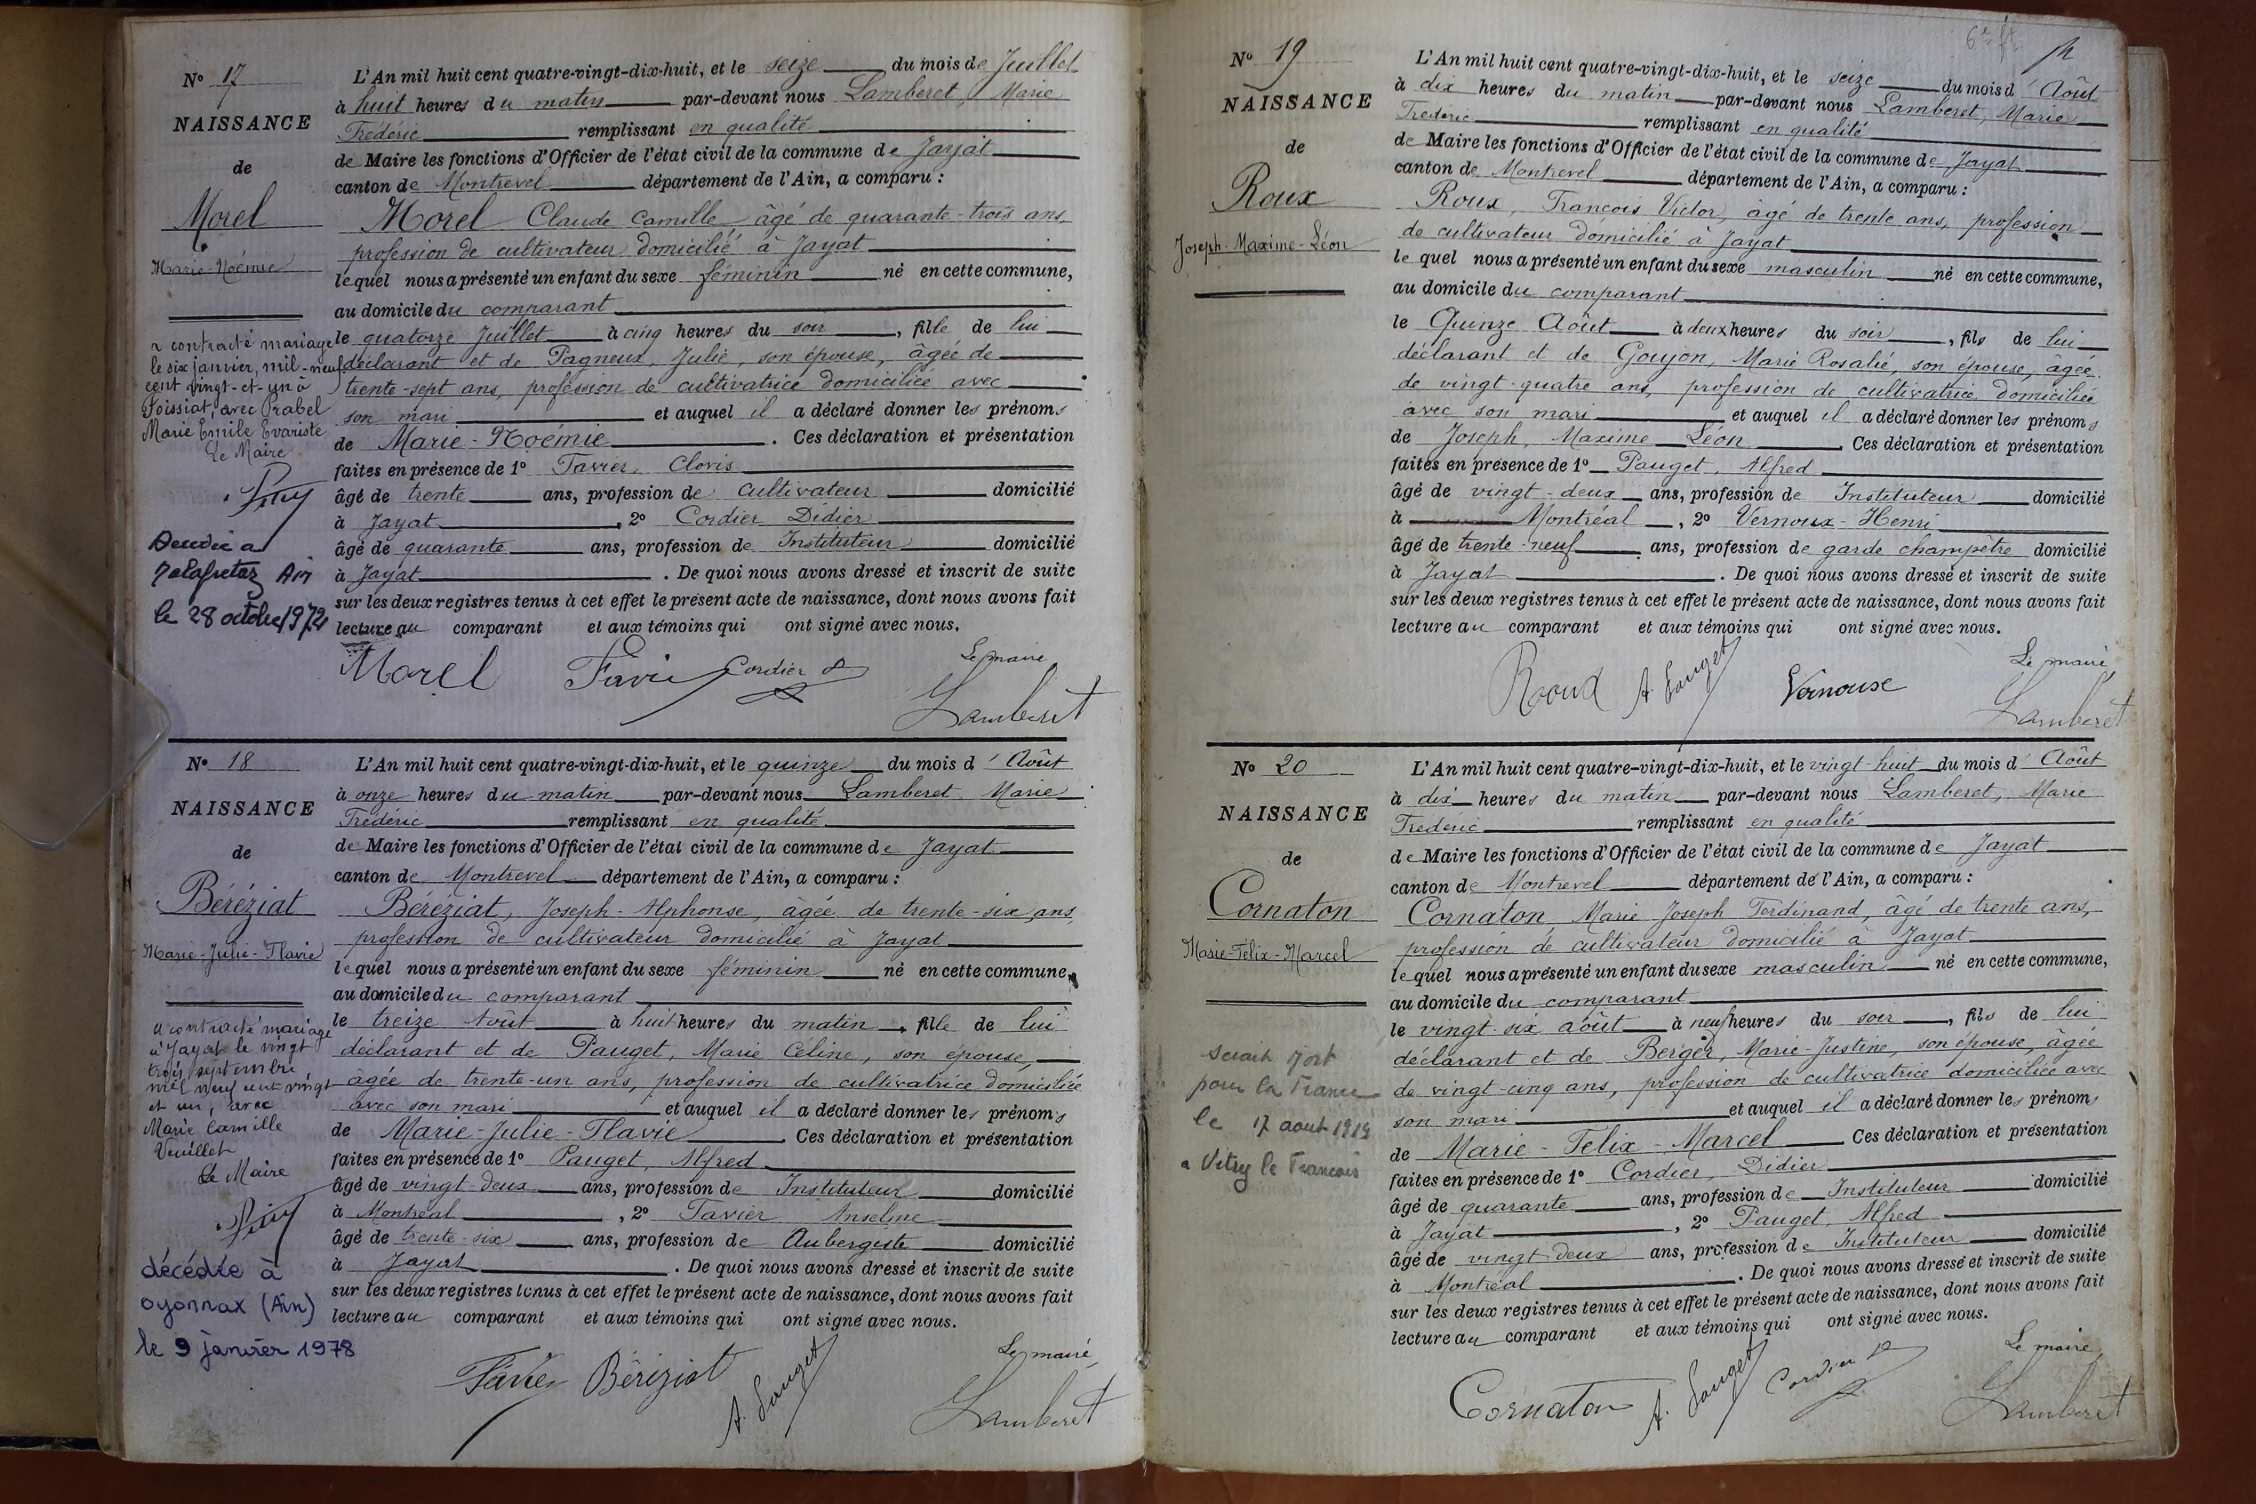 N° 17
NAISSANCE
de
Morel
Marie-Noémie
a contracté mariage
le six janvier, mil-neuf
cent vingt-et-un à
Foissiat, avec Prabel
Marie Emile Evariste
Le Maire
le 28 octobre 1972
L'An mil huit cent quatre-vingt-dix-huit, et le seize du mois de Juillet
à huit heures du matin par-devant nous Lamberet, Marie
Frédéric remplissant en qualité
de Maire les fonctions d'Officier de l'état civil de la commune de Jayat
canton de Montrevel département de l'Ain, a comparu :
Morel Claude Camille âgé de quarante-trois ans,
profession de cultivateur domicilié à Jayat
lequel nous a présenté un enfant du sexe féminin né en cette commune,
au domicile du comparant
le quatorze Juillet à cinq heures du soir, fille de lui
déclarant et de Pagneux, Julie, son épouse, âgée de
trente-sept ans, profession de cultivatrice domiciliée avec
son mari et auquel il a déclaré donner les prénoms
de Marie-Noémie. Ces déclaration et présentation
faites en présence de 1° Favier, Clovis
âgé de trente ans, profession de cultivateur domicilié
à Jayat, 2° Cordier Didier
âgé de quarante ans, profession de Instituteur domicilié
à Jayat. De quoi nous avons dressé et inscrit de suite
sur les deux registres tenus à cet effet le présent acte de naissance, dont nous avons fait
lecture au comparant et aux témoins qui ont signé avec nous.
Le maire
Morel Favier Cordier D
Lamberet
N° 18
NAISSANCE
de
Béréziat
Marie-Julie-Flavie
a contracté mariage
à Jayat le vingt
trois septembre
mil neuf cent vingt
et un, avec
Marie Camille
Vuillet
Le Maire
décédée à
oyonnax (Ain)
le 9 janvier 1978
L'An mil huit cent quatre-vingt-dix-huit, et le quinze du mois d'Août
à onze heures du matin par-devant nous Lamberet Marie
Frédéric remplissant en qualité
de Maire les fonctions d'Officier de l'état civil de la commune de Jayat
canton de Montrevel département de l'Ain, a comparu :
Béréziat, Joseph-Alphonse, âgée de trente-six ans,
profession de cultivateur domicilié à Jayat
lequel nous a présenté un enfant du sexe féminin né en cette commune,
au domicile du comparant
le treize Août à huit heures du matin, fille de lui
déclarant et de Pauget, Marie Céline, son épouse,
âgée de trente-un ans, profession de cultivatrice domiciliée
avec son mari et auquel il a déclaré donner les prénoms
de Marie-Julie-Flavie. Ces déclaration et présentation
faites en présence de 1° Pauget, Alfred
âgé de vingt-deux ans, profession de Instituteur domicilié
à Montréal, 2° Favier Anselme
âgé de trente-six ans, profession de Aubergiste domicilié
à Jayat. De quoi nous avons dressé et inscrit de suite
sur les deux registres tenus à cet effet le présent acte de naissance, dont nous avons fait
lecture au comparant et aux témoins qui ont signé avec nous.
Le maire
Favier Béréziat A. Pauget
Lamberet
N° 19
NAISSANCE
de
Roux
Joseph-Maxime-Léon
L'An mil huit cent quatre-vingt-dix-huit, et le seize du mois d'Août
à dix heures du matin par-devant nous Lamberet, Marie
Frédéric remplissant en qualité
de Maire les fonctions d'Officier de l'état civil de la commune de Jayat
canton de Montrevel département de l'Ain, a comparu :
Roux, François Victor, âgé de trente ans, profession
de cultivateur domicilié à Jayat
lequel nous a présenté un enfant du sexe masculin né en cette commune,
au domicile du comparant
le Quinze Août à deux heures du soir, fils de lui
déclarant et de Goujon, Marie Rosalie, son épouse, âgée
de vingt-quatre ans, profession de cultivatrice domiciliée
avec son mari et auquel il a déclaré donner les prénoms
de Joseph, Maxime Léon. Ces déclaration et présentation
faites en présence de 1° Pauget, Alfred
âgé de vingt-deux ans, profession de Instituteur domicilié
à Montréal, 2° Vernoux-Henri
âgé de trente-neuf ans, profession de garde champêtre domicilié
à Jayat. De quoi nous avons dressé et inscrit de suite
sur les deux registres tenus à cet effet le présent acte de naissance, dont nous avons fait
lecture au comparant et aux témoins qui ont signé avec nous.
Le maire
Roux A. Pauget Vernoux
Lamberet
N° 20
NAISSANCE
de
Cornaton
Marie-Felix-Marcel
serait mort
pour la France
le 17 aout 1919
a Vitry le Francois
L'An mil huit cent quatre-vingt-dix-huit, et le vingt-huit du mois d'Août
à dix heures du matin par-devant nous Lamberet, Marie
Frédéric remplissant en qualité
de Maire les fonctions d'Officier de l'état civil de la commune de Jayat
canton de Montrevel département de l'Ain, a comparu :
Cornaton Marie Joseph Ferdinand, âgé de trente ans,
profession de cultivateur domicilié à Jayat
lequel nous a présenté un enfant du sexe masculin né en cette commune,
au domicile du comparant
le vingt-six août à neuf heures du soir, fils de lui
déclarant et de Berger, Marie-Justine, son épouse, âgée
de vingt-cinq ans, profession de cultivatrice domiciliée avec
son mari et auquel il a déclaré donner les prénoms
de Marie-Felix-Marcel. Ces déclaration et présentation
faites en présence de 1° Cordier, Didier
âgé de quarante ans, profession de Instituteur domicilié
à Jayat, 2° Pauget, Alfred
âgé de vingt-deux ans, profession de Instituteur domicilié
à Montréal. De quoi nous avons dressé et inscrit de suite
sur les deux registres tenus à cet effet le présent acte de naissance, dont nous avons fait
lecture au comparant et aux témoins qui ont signé avec nous.
Le maire
Cornaton A. Pauget Cordier D
Lamberet